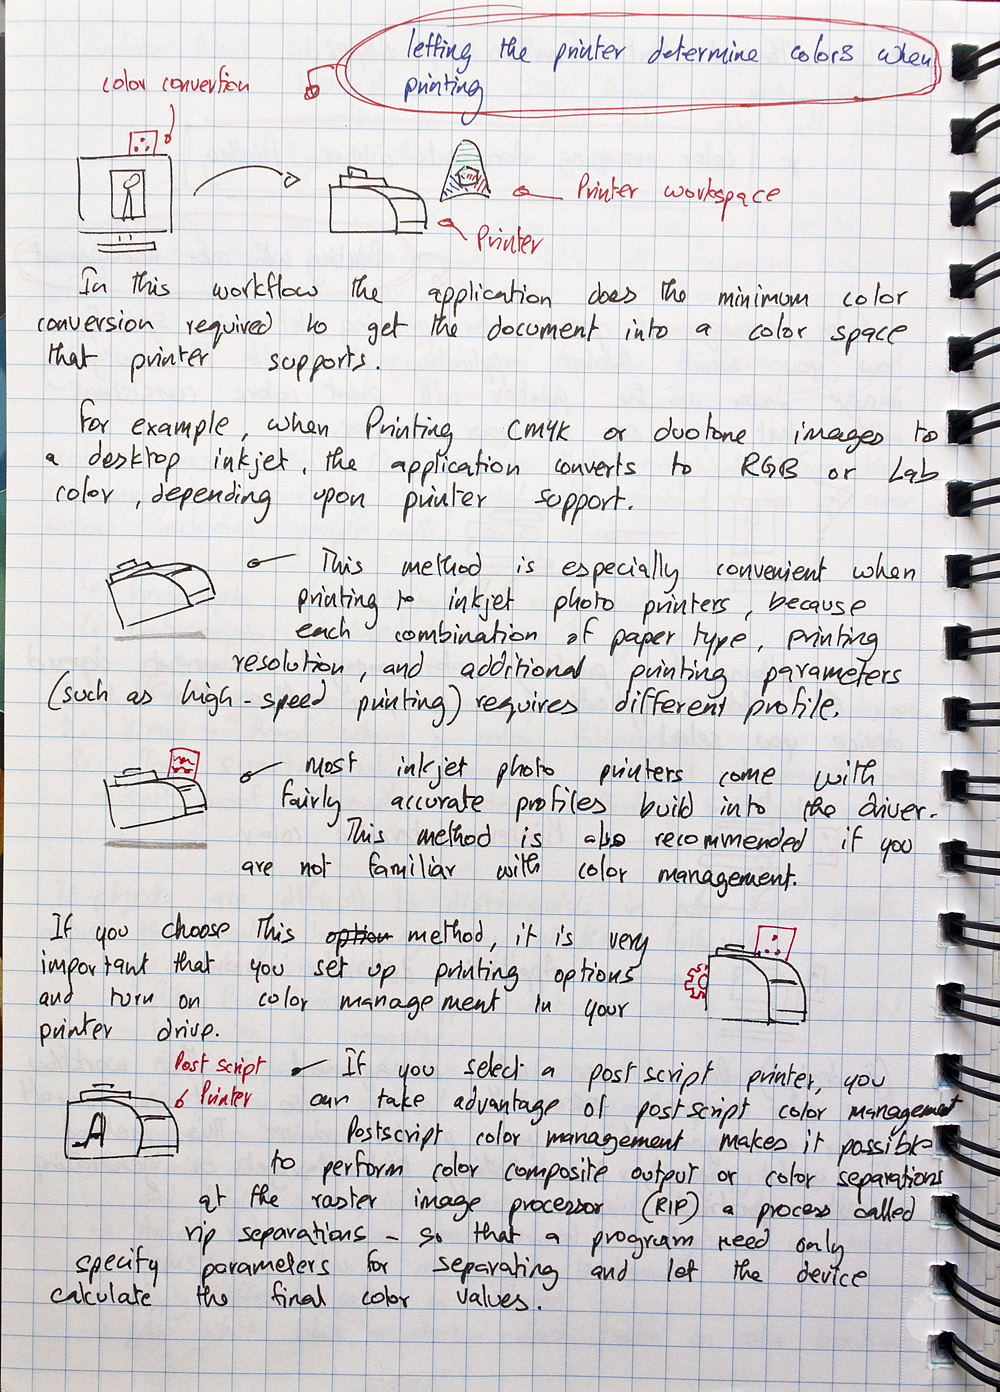 letting the printer determine colors when
printing
color convertion
Printer workspace
Printer
In this workflow the application does the minimum color
conversion required to get the document into a color space
that printer supports.
For example, when Printing CMYK or duotone images to
a desktop inkjet, the application converts to RGB or Lab
color, depending upon printer support.
This method is especially convenient when
printing to inkjet photo printers, because
each combination of paper type, printing
resolution, and additional printing parameters
(such as high-speed printing) requires different profile.
most inkjet photo printers come with
fairly accurate profiles build into the driver.
This method is also recommended if you
are not familiar with color management.
If you choose this option method, it is very
important that you set up printing options
and turn on color management in your
printer drive.
Post script
Printer
If you select a post script printer, you
can take advantage of postscript color management
Postscript color management makes it possible
to perform color composite output or color separations
at the raster image processor (RIP) a process called
rip separations - so that a program need only
specify parameters for separating and let the device
calculate the final color values.